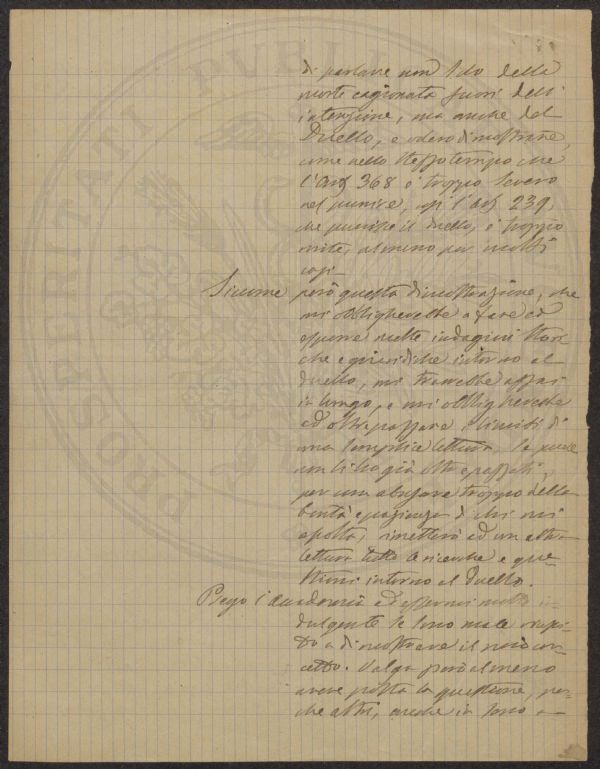 di parlare non solo della
morte cagionata fuori dell'
intenzione, ma anche del
Duello, e voler dimostrare,
come nello stesso tempo che
l'Art 368 è troppo severo
nel punire, così l'art 239,
che punisce il duello, è troppo
mite, almeno per molti
casi.
Siccome però questa dimostrazione, che
mi obbligherebbe a fare ed
esporre molte indagini stori
che e giuridiche intorno al
duello, mi trarrebbe assai
in lungo, e mi obbligherebbe
ad oltrepassare i limiti di
una semplice lettura, se pure
non li ho già oltrepassati,
per non abusare troppo della
bontà e pazienza di chi mi
ascolta, rimetterò ad un altra
lettura tutte le ricerche e que-
stioni intorno al duello.
Prego l'accademia ad essermi molto in-
dulgente se sono male riusci-
to a dimostrare il mio con-
cetto. Valga però almeno
avere posta la questione, per-
che altri, anche in seno a
PROSPERITATI PUBL